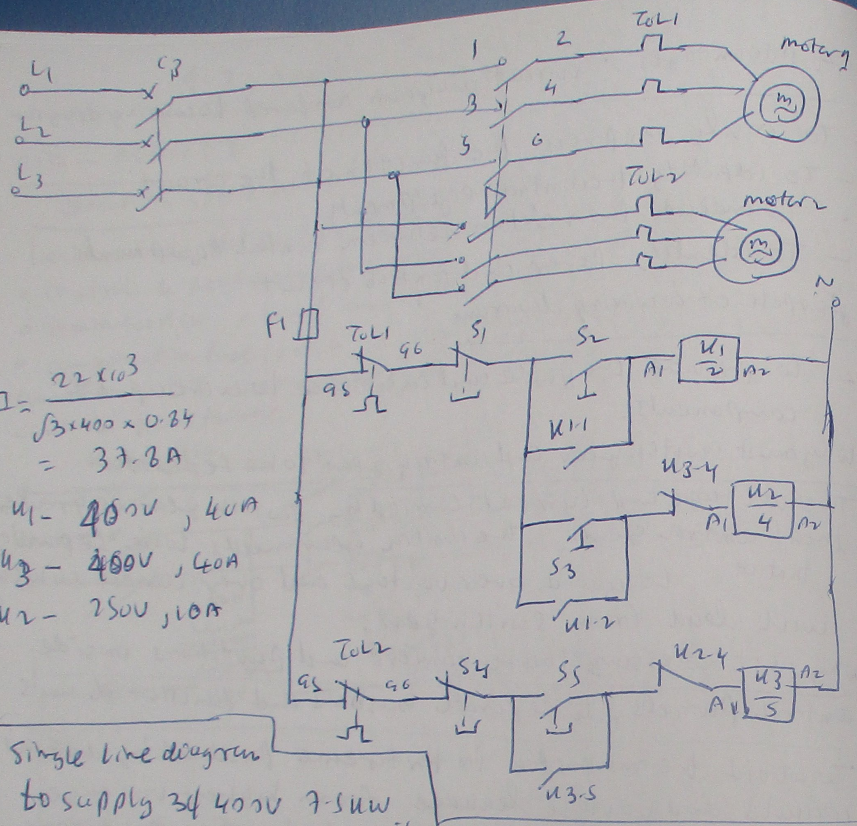 L1
CB
1
2
TOL1
motor1
L2
3
4
L3
5
6
TOL2
motor2
M
M
N
F1
TOL1
95
96
S1
S2
K1
2
A1
A2
K1-1
K3-4
S3
K2
4
A1
A2
K1-2
TOL2
95
96
S4
S5
K2-4
K3
5
A1
A2
K3-5
I = 22 x10³
√3 x 400 x 0.84
= 37.8A
K1 - 400V, 40A
K3 - 400V, 40A
K2 - 250V, 10A
Single line diagram
to supply 3ɸ 400V 7.5KW